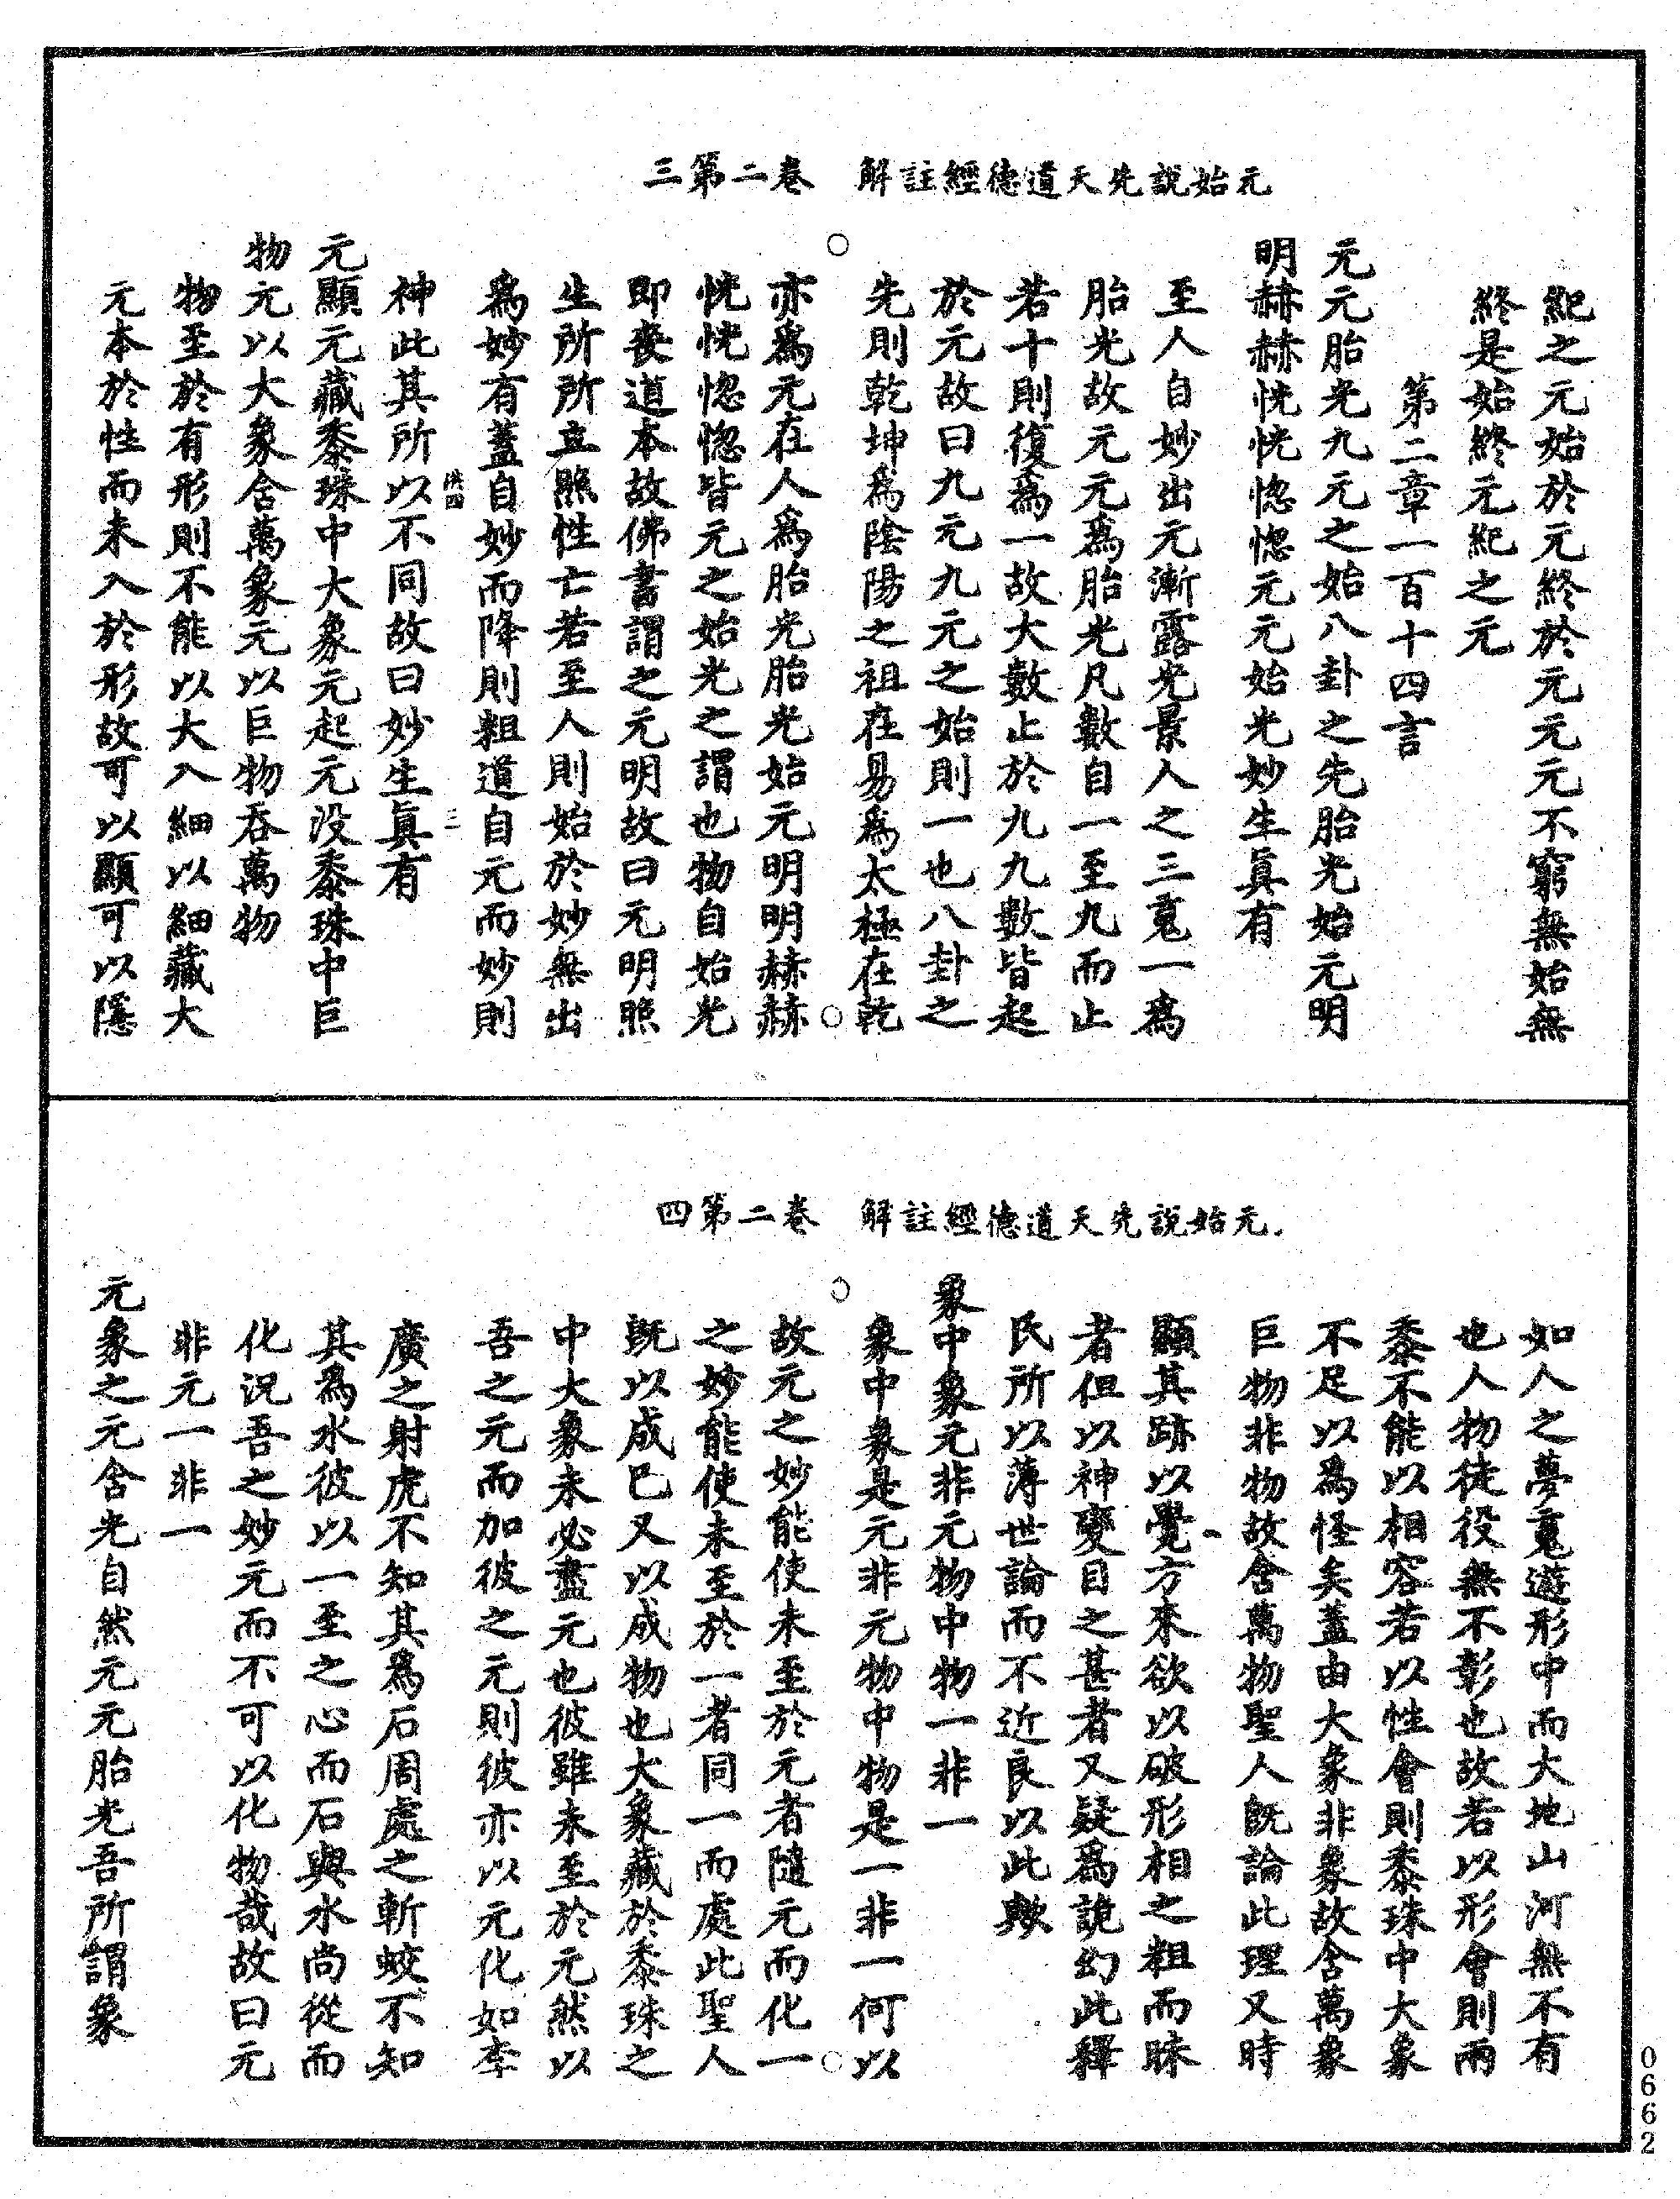 元始說先天道德經註解　卷二第三
紀之元始於元終於元元元不窮無始無
終是始終元紀之元
第二章一百十四言
元元胎光九元之始八卦之先胎光始元明
明赫赫恍恍惚惚元元始光妙生真有
至人自妙出元漸露光景人之三䰟一爲
胎光故元元爲胎光凡數自一至九而止
若十則復爲一故大數止於九九數皆起
於元故曰九元九元之始則一也八卦之
先則乾坤爲陰陽之祖在易爲太極在乾
亦爲元在人爲胎光胎光始元明明赫赫
恍恍惚惚皆元之始光之謂也物自始光
即喪道本故佛書謂之元明故曰元明照
生所所立照性亡若至人則始於妙無出
爲妙有蓋自妙而降則粗道自元而妙則
洪四
三
神此其所以不同故曰妙生真有
元顯元藏黍珠中大象元起元没黍珠中巨
物元以大象含萬象元以巨物吞萬物
物至於有形則不能以大入細以細藏大
元本於性而未入於形故可以顯可以隱
元始說先天道德經註解　卷二第四
如人之夢䰟遊形中而大地山河無不有
也人物徒役無不彰也故若以形會則兩
黍不能以相容若以性會則黍珠中大象
不足以爲怪矣蓋由大象非象故含萬象
巨物非物故含萬物聖人既論此理又時
顯其跡以覺方來欲以破形相之粗而昧
者但以神變目之甚者又疑爲詭幻此釋
民所以薄世論而不近良以此歟
象中象元非元物中物一非一
象中象是元非元物中物是一非一何以
故元之妙能使未至於元者隨元而化一
之妙能使未至於一者同一而處此聖人
既以成已又以成物也大象藏於黍珠之
中大象未必盡元也彼雖未至於元然以
吾之元而加彼之元則彼亦以元化如李
廣之射虎不知其爲石周處之斬蛟不知
其爲水彼以一至之心而石與水尚從而
化況吾之妙元而不可以化物哉故曰元
非元一非一
元象之元含光自然元元胎光吾所謂象
0662